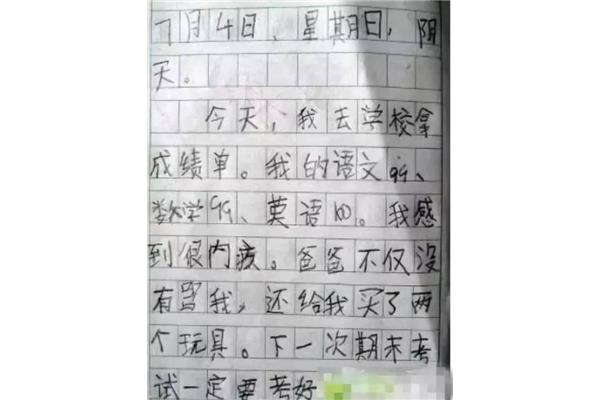 7月4日，星期日，阴
天。
今天，我去学校拿
成绩单。我的语文99、
数学99、英语100。我感
到很内疚。爸爸不仅没
有骂我，还给我买了两
个玩具。下一次期末考
试一定要考好